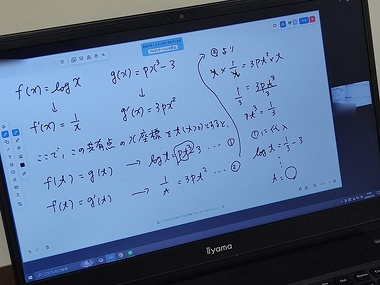 f(x) = log x
g(x) = px³ - 3
↓
↓
f'(x) = 1/x
g'(x) = 3px²
ここで、この共有点のx座標をt(t>0)とすると、
f(t) = g(t) → log t = pt³ - 3 … ①
f'(t) = g'(t) → 1/t = 3pt² … ②
②より
t × 1/t = 3pt² × t
1/3 = 3pt³/3
pt³ = 1/3
①に代入
log t = 1/3 - 3
⋮
t = ○
iiyama